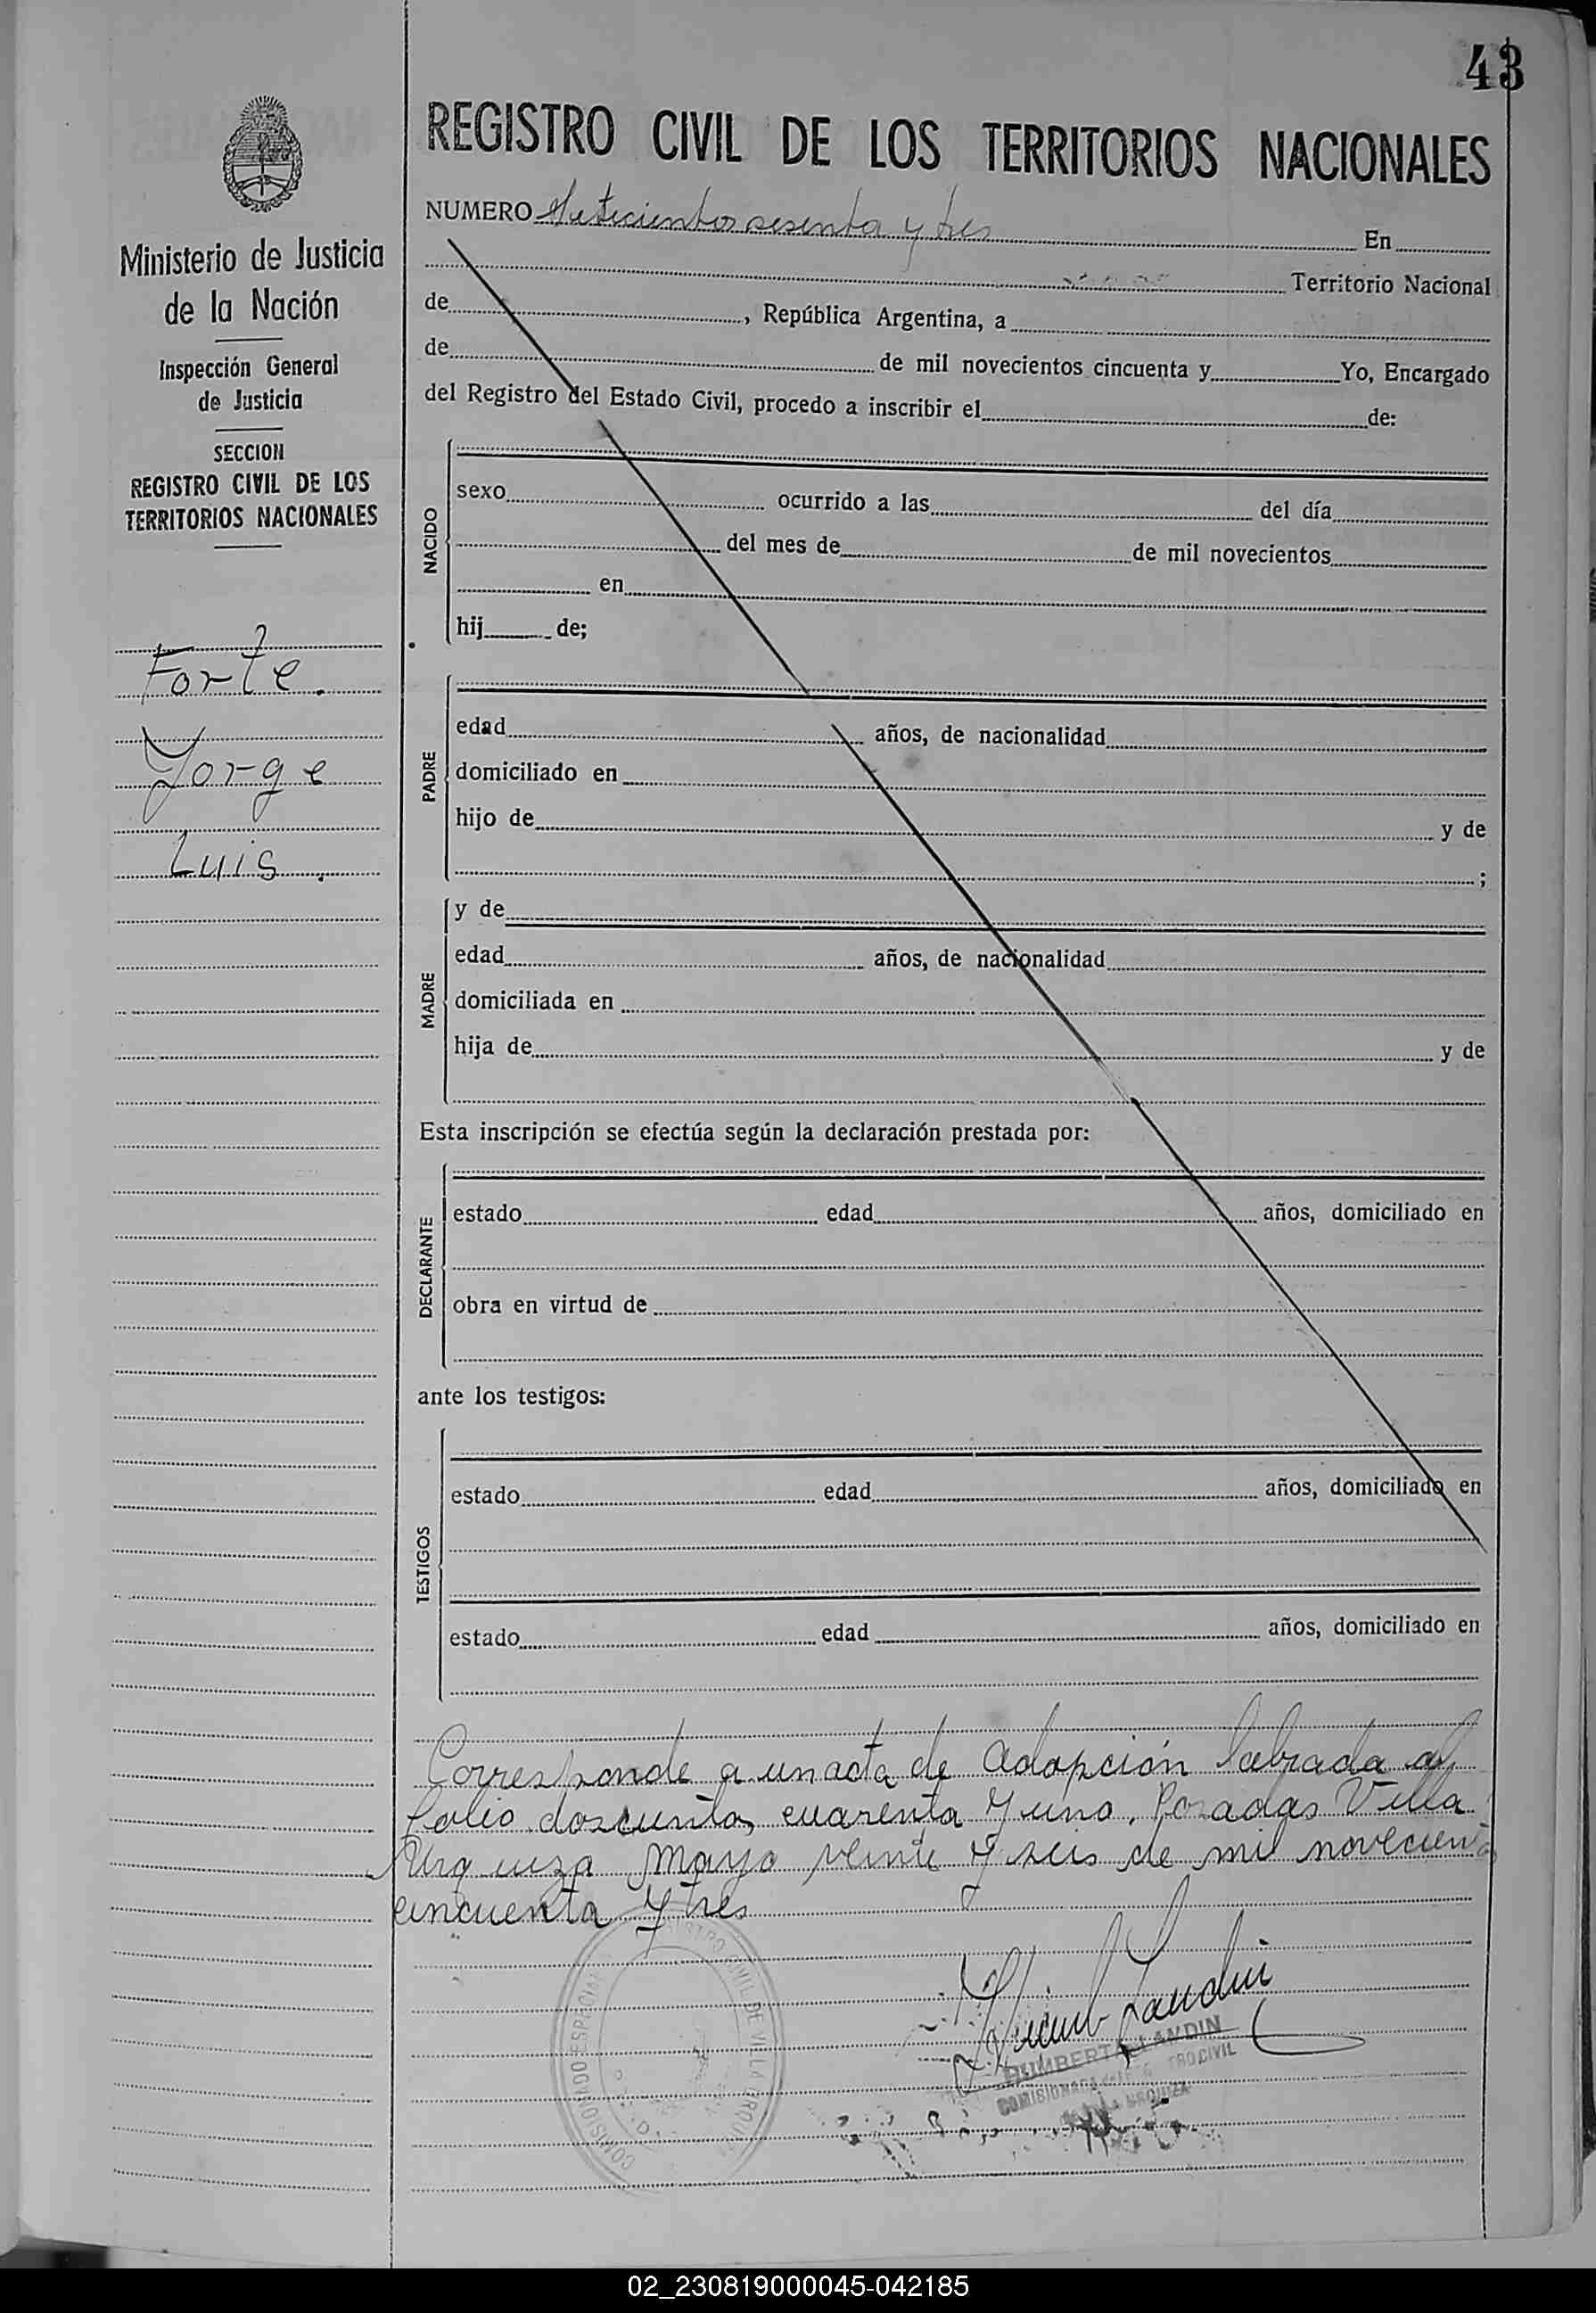 43
REGISTRO CIVIL DE LOS TERRITORIOS NACIONALES
NUMERO Setecientos sesenta y tres En
Territorio Nacional
de , República Argentina, a
de de mil novecientos cincuenta y Yo, Encargado
del Registro del Estado Civil, procedo a inscribir el de:
Ministerio de Justicia
de la Nación
Inspección General
de Justicia
SECCION
REGISTRO CIVIL DE LOS
TERRITORIOS NACIONALES
Forte.
Jorge
Luis.
NACIDO
sexo ocurrido a las del día
del mes de de mil novecientos
en
hij de;
PADRE
edad años, de nacionalidad
domiciliado en
hijo de y de
;
MADRE
y de
edad años, de nacionalidad
domiciliada en
hija de y de
Esta inscripción se efectúa según la declaración prestada por:
DECLARANTE
estado edad años, domiciliado en
obra en virtud de
ante los testigos:
TESTIGOS
estado edad años, domiciliado en
estado edad años, domiciliado en
Corresponde a un acta de Adopción labrada al
folio doscientos cuarenta y uno. Posadas Villa
Urquiza Mayo veinte y seis de mil novecientos
cincuenta y tres
COMISIONADO ESPECIAL REGISTRO CIVIL DE VILLA URQUIZA
LANDIN
02_230819000045-042185